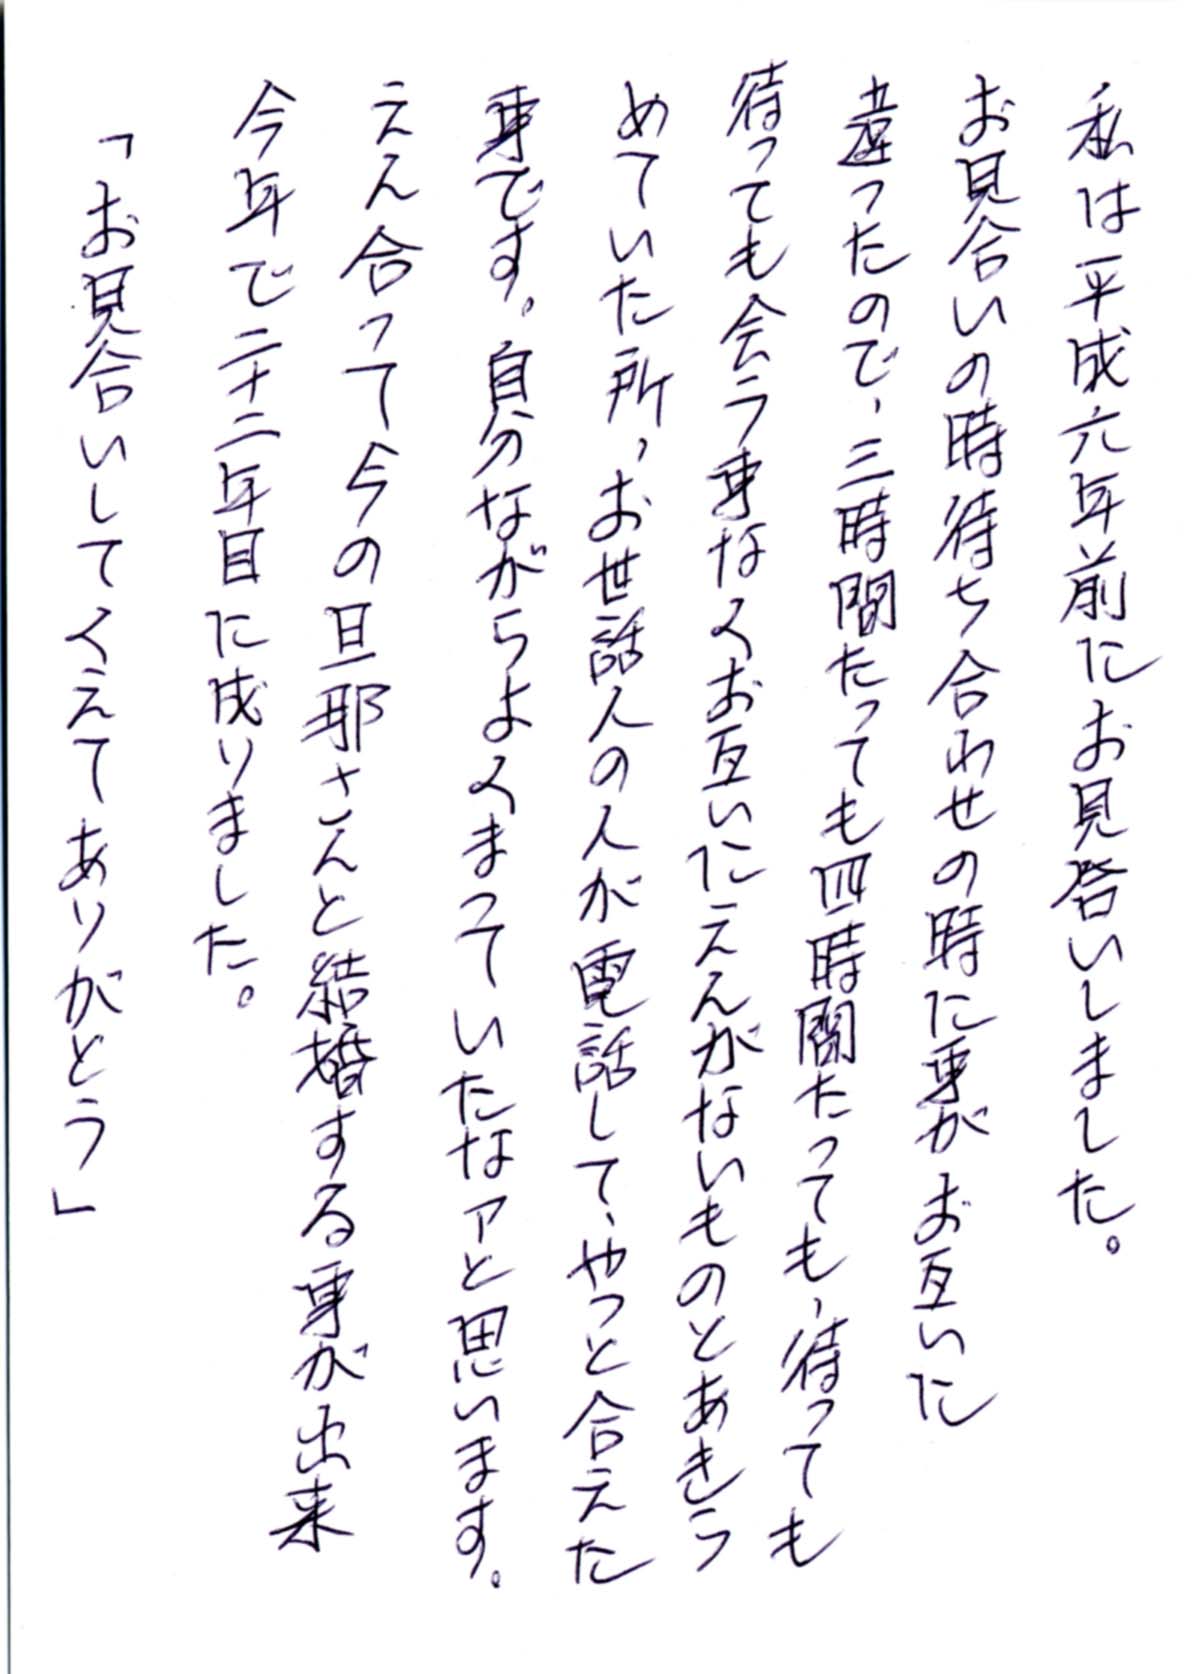 私は平成六年前にお見合いしました。
お見合いの時待ち合わせの時に事がお互いに
違ったので、三時間たっても四時間たっても、待っても
待っても会う事なくお互いにえんがないものとあきら
めていた所、お世話人の人が電話して、やっと合えた
事です。自分ながらよくまっていたなアと思います。
えん合って今の旦那さんと結婚する事が出来
今年で二十二年目に成りました。
「お見合いしてくえてありがとう」